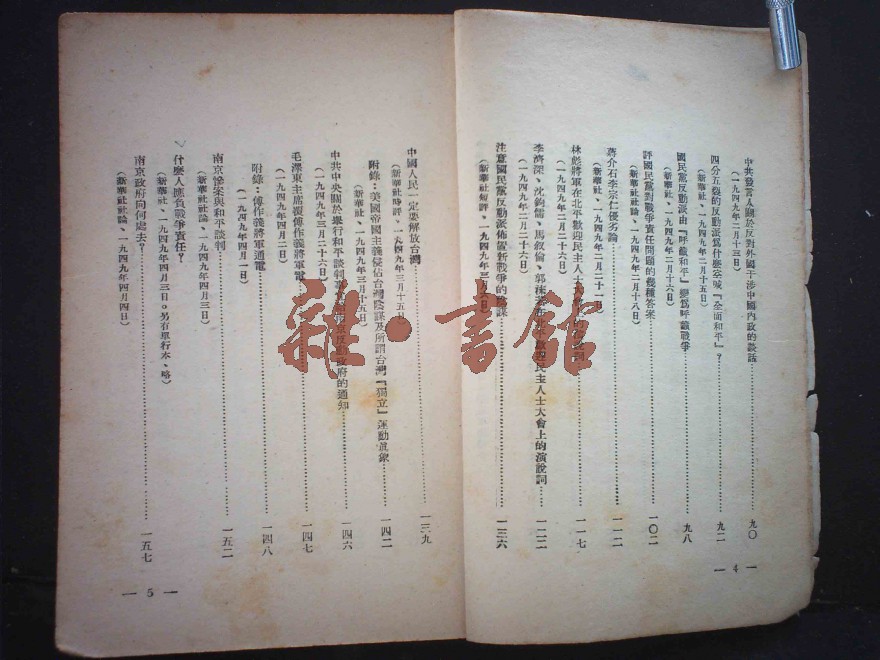 中共發言人關於反對外國干涉中國內政的談話……九〇
(一九四九年二月十三日)
四分五裂的反動派爲什麼空喊『全面和平』?……九二
(新華社、一九四九年二月十五日)
國民黨反動派由『呼籲和平』變爲呼籲戰爭……九八
(新華社、一九四九年二月十六日)
評國民黨對戰爭責任問題的幾種答案……一〇二
(新華社、一九四九年二月十八日)
蔣介石李宗仁優劣論……一一二
(新華社、一九四九年二月二十一日)
林彪將軍在北平歡迎民主人士大會上的……一一七
(一九四九年二月二十六日)
李濟深、沈鈞儒、馬叙倫、郭沫若……民主人士大會上的演說詞……一二二
(一九四九年二月二十六日)
注意國民黨反動派佈置新戰爭的陰謀……一三六
(新華社短評、一九四九年三月六日)
— 4 —
中國人民一定要解放台灣……一三九
(新華社時評、一九四九年三月十五日)
附錄:美國帝國主義侵佔台灣陰謀及所謂台灣『獨立』運動眞象……一四二
(新華社、一九四九年三月十五日)
中共中央關於舉行和平談判……南京反動政府的通知……一四六
(一九四九年三月二十六日)
毛澤東主席覆傅作義將軍電……一四七
附錄:傅作義將軍通電……一四八
(一九四九年四月一日)
南京慘案與和平談判……一五二
(新華社社論、一九四九年四月三日)
什麼人應負戰爭責任?
(新華社、一九四九年四月三日。另有單行本、略)
南京政府向何處去?……一五七
(新華社社論、一九四九年四月四日)
— 5 —
雜·書館